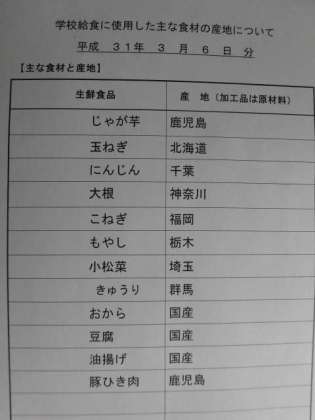 学校給食に使用した主な食材の産地について
平成 31年 3 月 6 日 分
【主な食材と産地】
生鮮食品 産 地（加工品は原材料）
じゃが芋 鹿児島
玉ねぎ 北海道
にんじん 千葉
大根 神奈川
こねぎ 福岡
もやし 栃木
小松菜 埼玉
きゅうり 群馬
おから 国産
豆腐 国産
油揚げ 国産
豚ひき肉 鹿児島